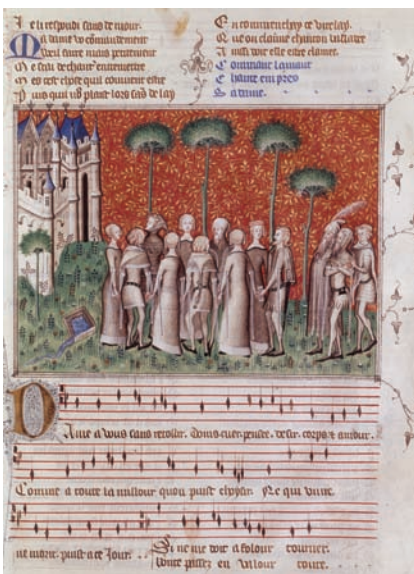 Je li respondi sans demour.
Ma dame vo comandement
Weil faire mais petitement
Me scai de chant entremettre
Mes cest chose quil couvient estre
Puis quil vo plaist lors sans delay
En commencay ce virelay.
Que on claime chancon baladee
Ainsi doit elle estre clamee.
Comment lamant
chante empres
sa dame.
Dame a vous sans retollir. Doins cuer. pensee. desir. corps. et amour.
Comme a toute la millour quon puist choysir. Ne qui vivre.
ne morir. puist a ce Jour. Si ne me doit a folour tourner.
bonte passez en valour toute.